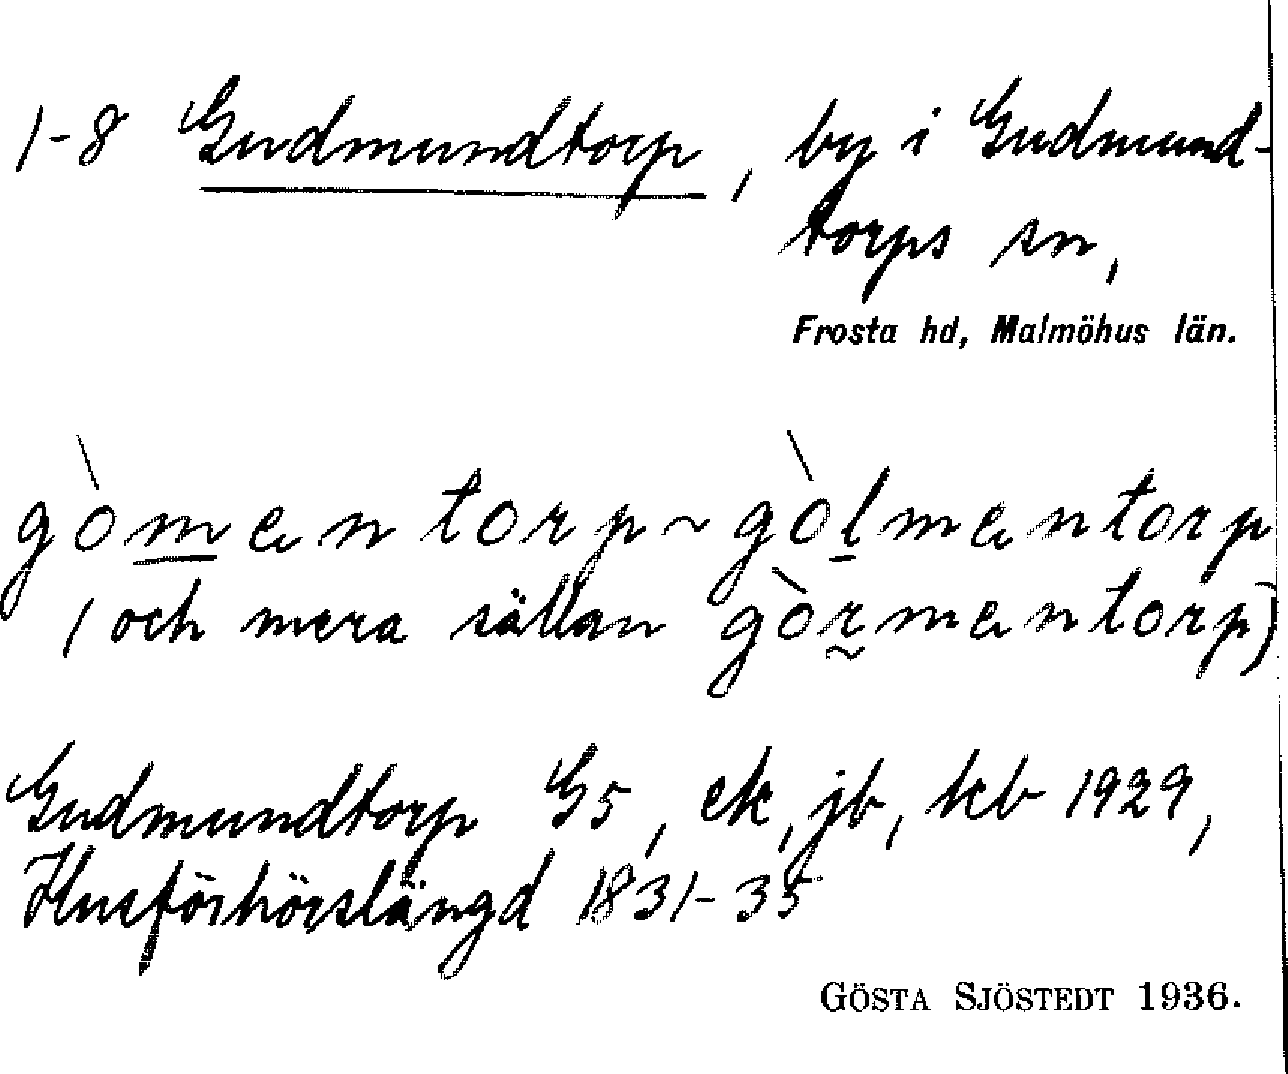 1-8 Gudmundtorp, by i Gudmund-
torps sn,
Frosta hd, Malmöhus län.
gòmentorp ~ gòlmentorp
(och mera sällan gòrmentorp)
Gudmundtorp G5, ek, jb, kb 1929,
Husförhörslängd 1831-35
GÖSTA SJÖSTEDT 1936.